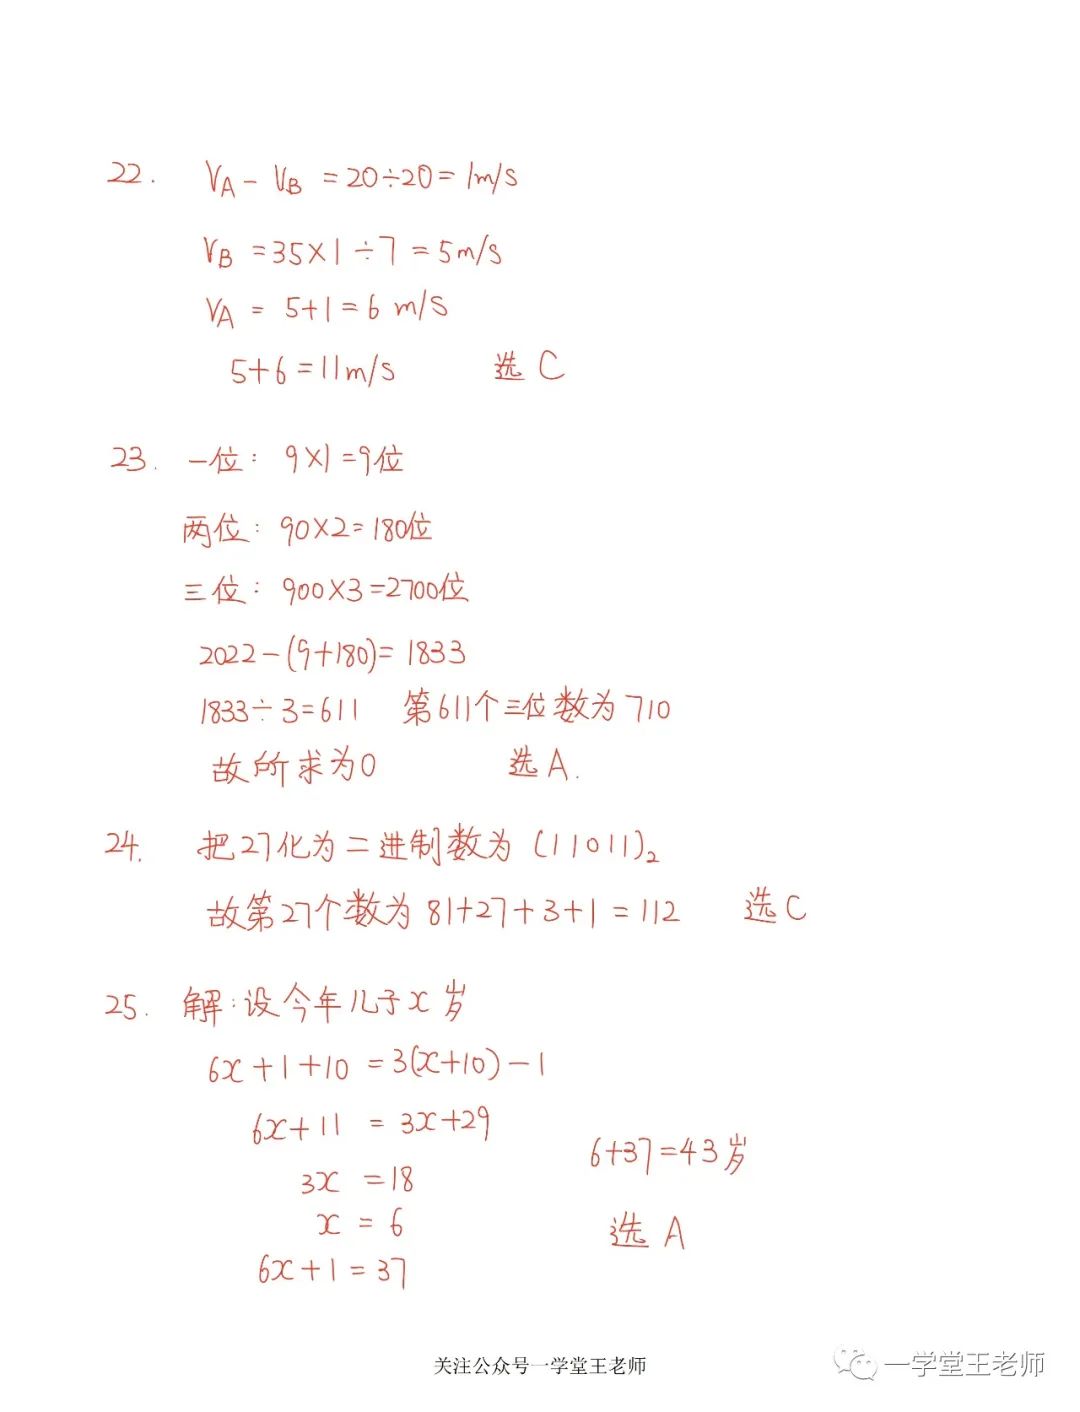 22. V_A - V_B = 20÷20 = 1m/s
V_B = 35×1÷7 = 5m/s
V_A = 5+1 = 6 m/s
5+6 = 11m/s 选 C
23. 一位: 9×1=9位
两位: 90×2=180位
三位: 900×3=2700位
2022-(9+180)= 1833
1833÷3=611 第611个三位数为710
故所求为0 选A.
24. 把27化为二进制数为 (11011)₂
故第27个数为 81+27+3+1 = 112 选C
25. 解:设今年儿子x岁
6x+1+10 = 3(x+10)-1
6x+11 = 3x+29
3x = 18
x = 6
6x+1 = 37
6+37=43岁
选 A
关注公众号一学堂王老师
一学堂王老师